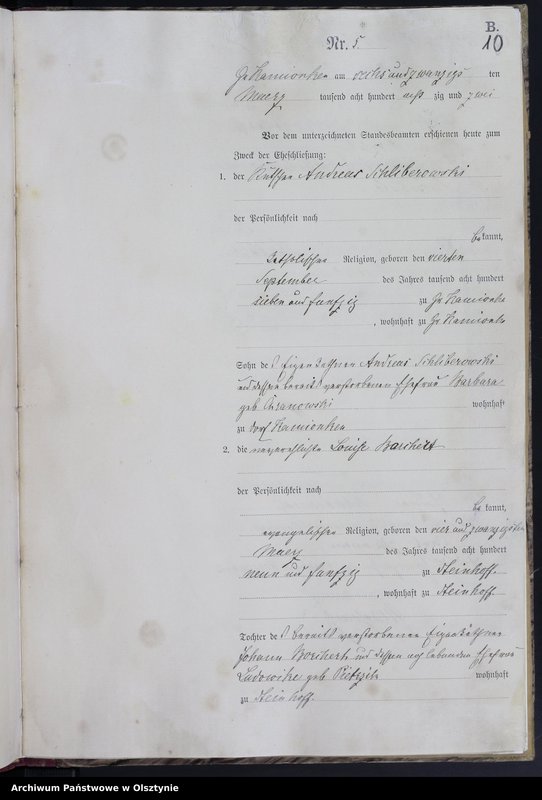 B.
Nr. 5
10
Gr Kamionken am sechs und zwanzigs ten
Maerz tausend acht hundert acht zig und zwei
Vor dem unterzeichneten Standesbeamten erschienen heute zum
Zweck der Eheschließung:
1. der Kutscher Andreas Schliberowski
der Persönlichkeit nach
be kannt,
katholischer Religion, geboren den vierten
September des Jahres tausend acht hundert
sieben und fünfzig zu Gr Kamionken
, wohnhaft zu Gr Kamionken
Sohn des Eigenkäthners Andreas Schliberowski
und dessen bereits verstorbenen Ehefrau Barbara
geb wohnhaft
zu Dorf Kamionken
2. die unverehelichte Louise Borchert
der Persönlichkeit nach
be kannt,
evangelischer Religion, geboren den vier und zwanzigsten
Maerz des Jahres tausend acht hundert
neun und fünfzig zu Steinhoff.
, wohnhaft zu Steinhoff
Tochter des bereits verstorbenen Eigenkäthner
Johann Borchert und dessen noch lebenden Ehefrau
Ludowike geb wohnhaft
zu Steinhoff.
Archiwum Państwowe w Olsztynie